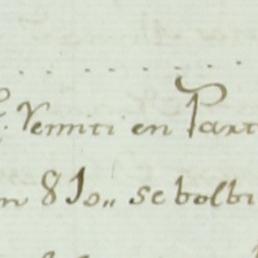 Venniti en Part
en 810,, se bolbi